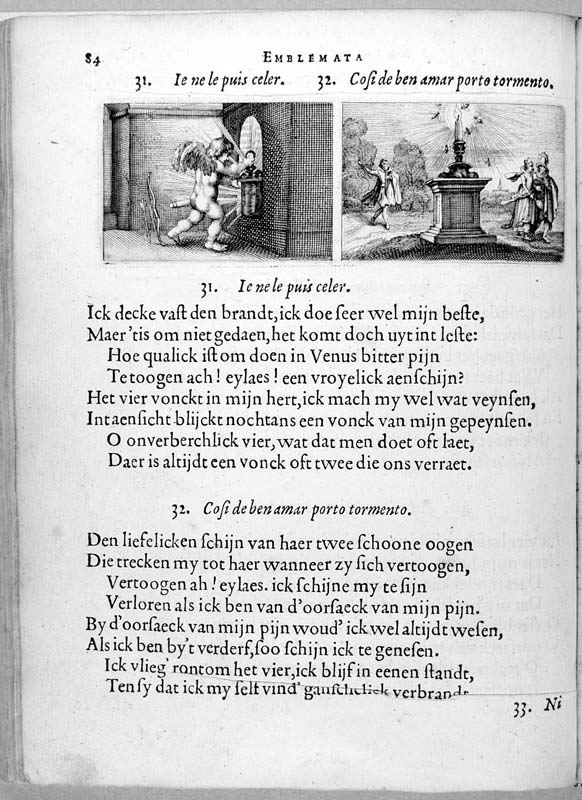 84 EMBLEMATA
31. Ie ne le puis celer. 32. Coſi de ben amar porto tormento.
31. Ie ne le puis celer.
Ick decke vaſt den brandt, ick doe ſeer wel mijn beſte,
Maer 'tis om niet gedaen, het komt doch uyt int leſte:
Hoe qualick iſt om doen in Venus bitter pijn
Te toogen ach! eylaes! een vroyelick aenſchijn?
Het vier vonckt in mijn hert, ick mach my wel wat veynſen,
Int aenſicht blijckt nochtans een vonck van mijn gepeynſen.
O onverberchlick vier, wat dat men doet oft laet,
Daer is altijdt een vonck oft twee die ons verraet.
32. Coſi de ben amar porto tormento.
Den liefelicken ſchijn van haer twee ſchoone oogen
Die trecken my tot haer wanneer zy ſich vertoogen,
Vertoogen ah! eylaes. ick ſchijne my te ſijn
Verloren als ick ben van d'oorſaeck van mijn pijn.
By d'oorſaeck van mijn pijn woud' ick wel altijdt weſen,
Als ick ben by't verderf, ſoo ſchijn ick te geneſen.
Ick vlieg' rontom het vier, ick blijf in eenen ſtandt,
Ten ſy dat ick my ſelf vind' gantſchelick verbrandt
33. Ni